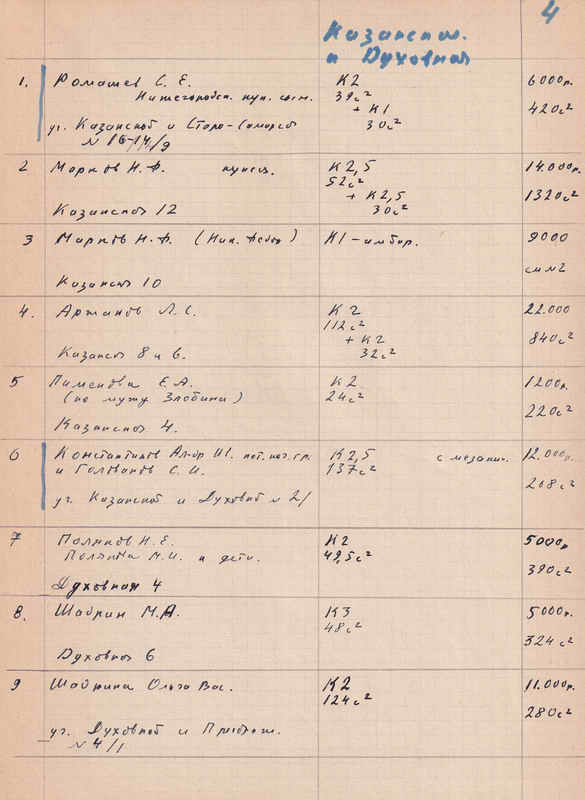 4
Казанская
и Духовная
1. Ромашев С. Е. К2 6000р.
Нижегородск. куп. сын. 39с²
+ К1 420с²
уг. Казанской и Старо-Самарск 30с²
N 16-14/9
2 Марков Н.Ф. купец. К2,5 14.000р.
52с²
+ К2,5 1320с²
Казанская 12 30с²
3 Марков Н.Ф. (Ник. Федор) К1-амбар. 9000
Казанск 10 см N2
4. Аржанов Л.С. К2 22.000
112с²
+ К2 840с²
Казанск 8 и 6. 32с²
5 Пименова Е.А. К2 1200р.
(по мужу Злобина) 24с²
220с²
Казанская 4.
6 Константинов Ал-др Ш. пот. поч. гр. К2,5 с мезанин. 12.000р.
и Голованов С.И. 137с²
268с²
уг. Казанской и Духовной N 2/
7 Поляков И.Е. К2 5000р
М.И. и дети. 49,5с²
390с²
Духовная 4
8. Шабрин М.А. К3 5000р.
48с²
324с²
Духовная 6
9 Ольга Вас. К2 11.000р.
124с²
280с²
уг. Духовной и
N 4/1